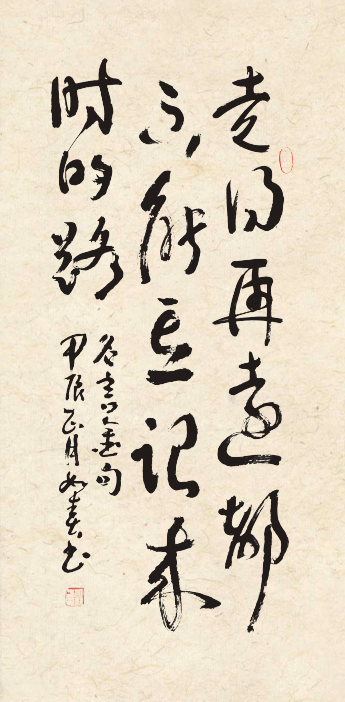 走得再远都
不能忘记来
时的路
名言金句
甲辰正月如春书